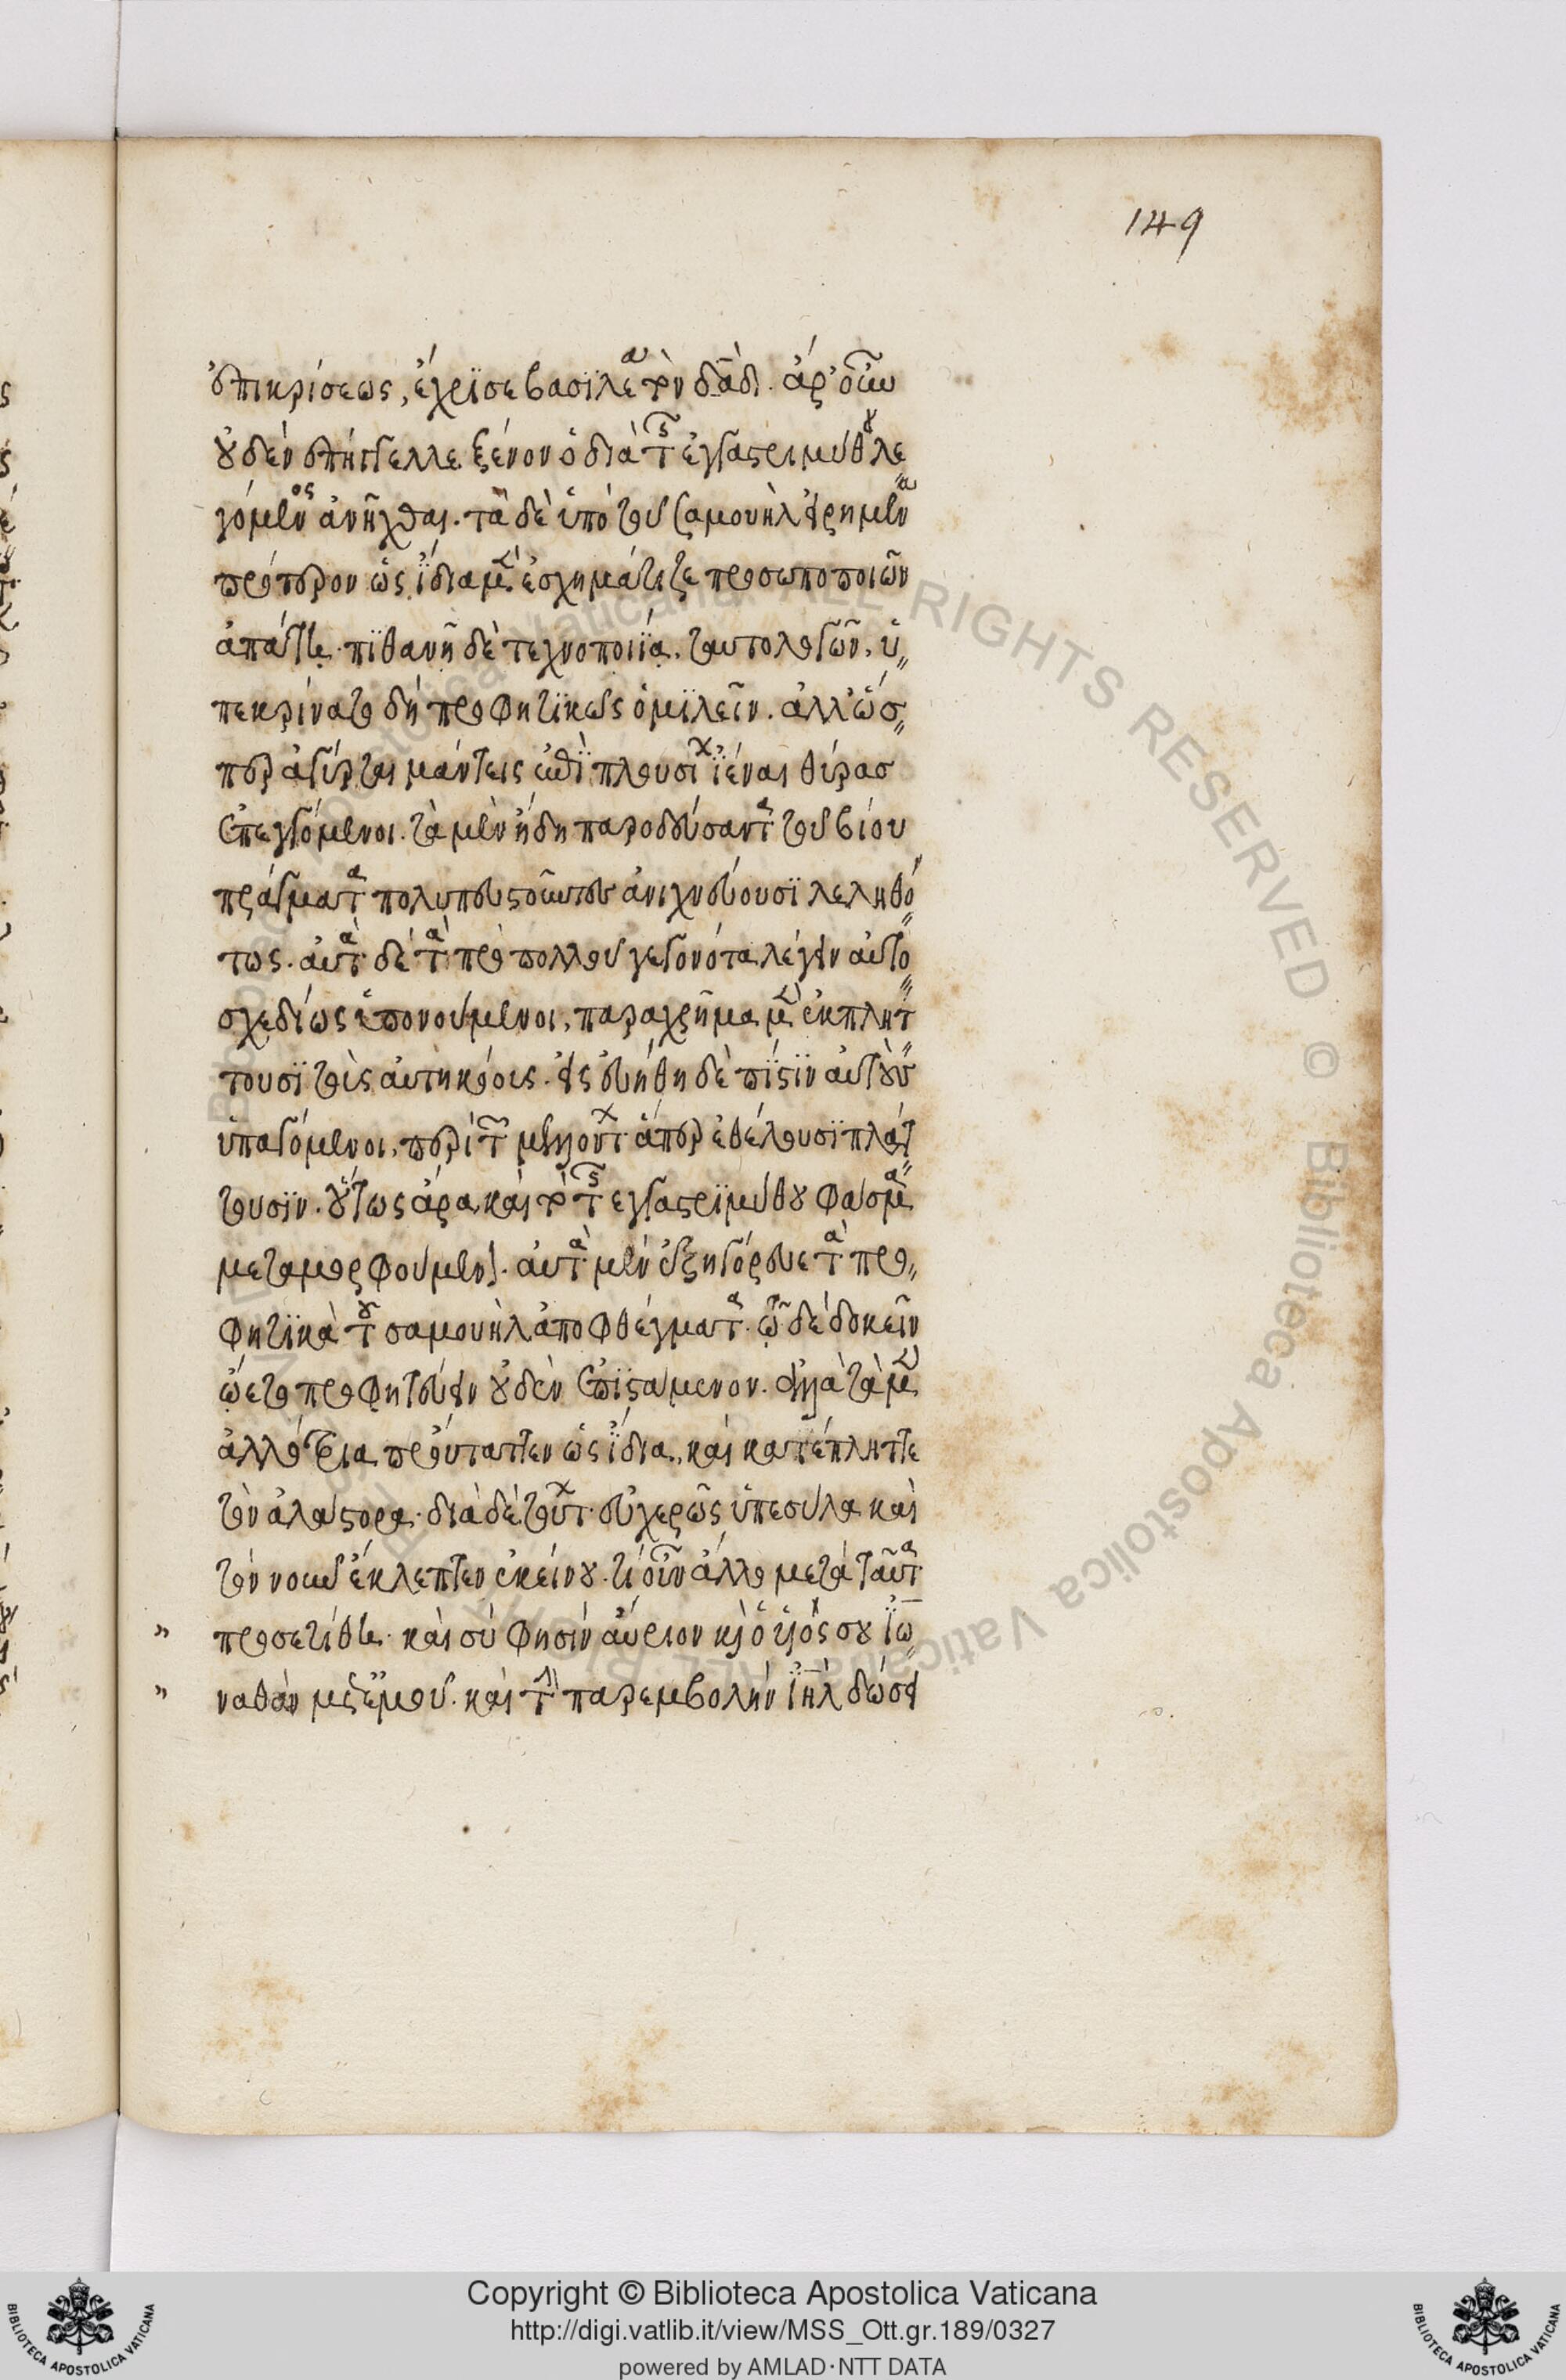 149
ἐπικρίσεως, ἔχρϊσε βασϊλέα τὸν δᾱδ̄. ἆρ' οὖν
οὐδὲν ἐπήγγελλε ξένον ὁ διὰ τῆς ἐγγαστριμύθου λε
γόμενος ἀνῆχθαι. τὰ δὲ ὑπὸ τοῦ σαμουὴλ εἰρημένα
πρότερον ὡς ϊδια μὲν ἐσχημάτιζε προσωποποιῶν
ἀπάτῃ. πϊθανῆ δὲ τεχνοποιΐα, ταυτολογῶν, ὑ
πεκρίνατο δὴ προφητϊκῶς ὁμϊλεῖν. ἀλλ' ὥσ
περ ἀγύρται μάντεις ἐπϊ πλουσίων ϊέναι θύρασ
ἐπειγόμενοι. τὰ μὲν ἤδη παροδεύσαντα τοῦ βίου
πράγματα πολυπευστοῦντες ἀνιχνεύουσϊ λεληθό
τως. αὐτὰ δὲ τὰ πρὸ πολλοῦ γεγονότα λέγειν αὐτο
σχεδίως ὑπονοούμενοι, παραχρῆμα μὲν ἐκπλήτ
τουσϊ τοὺς αὐτηκόους. εἰς εὐήθη δὲ πϊστϊν αὐτοὺς
ὑπαγόμενοι, περὶ τῶν μελλόντων ἅπερ ἐθέλουσϊ πλάτ
τουσϊν. οὕτως ἄρα καὶ τὸ τῆς εγγαστρϊμύθου φάσμα
μεταμορφούμενον. αὐτὰ μὲν ἐξηγόρευε τὰ προ
φητϊκὰ τοῦ σαμουὴλ ἀποφθέγματα. ὧν δὲ δοκεῖν
ᾤετο προφητεύειν οὐδὲν ἐπϊστάμενον. ἀλλὰ τὰ μὲν
ἀλλότρια προύταττεν ὡς ϊδια, καὶ κατέπληττε
τὸν ἀλάστορα. διὰ δὲ τούτων εὐχερῶς ὑπεσύλα καὶ
τὸν νοῦν ἔκλεπτεν ἐκείνου. τί οὖν ἄλλο μετὰ ταῦτα
" προσετίθει. καὶ σὺ φησὶν αὔριον κ(αὶ) ὁ υἱός σου ϊω
" ναθὰν μετ' ἐμοῦ. καὶ τὴν παρεμβολὴν ϊηλ δώσει
Copyright © Biblioteca Apostolica Vaticana
http://digi.vatlib.it/view/MSS_Ott.gr.189/0327
powered by AMLAD·NTT DATA